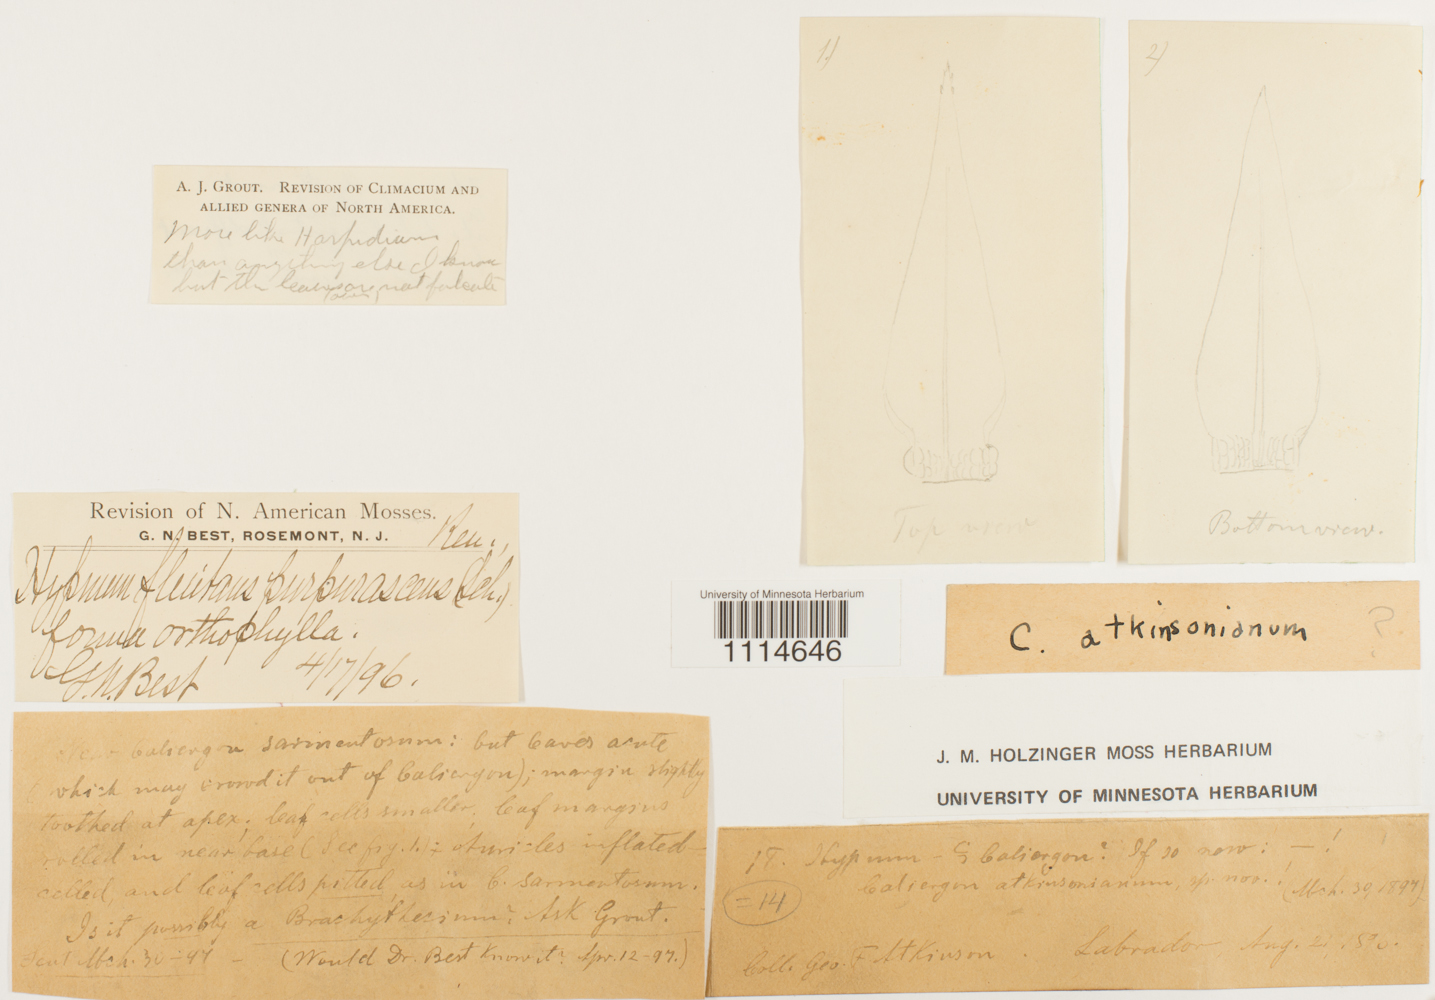 1)
Top view
2)
Bottom view.
A. J. GROUT. REVISION OF CLIMACIUM AND
ALLIED GENERA OF NORTH AMERICA.
More like Harpidium
than anything else I know
but the leaves are not falcate
Revision of N. American Mosses.
G. N. BEST, ROSEMONT, N. J.
Ren.,
Hypnum fluitans purpurascens (Sch.)
forma orthophylla.
G. N. Best 4/17/96.
University of Minnesota Herbarium
1114646
C. atkinsonianum ?
J. M. HOLZINGER MOSS HERBARIUM
UNIVERSITY OF MINNESOTA HERBARIUM
Near Caliergon sarmentosum: but leaves acute
(which may crowd it out of Caliergon); margin slightly
toothed at apex; leaf cells smaller, leaf margins
rolled in near base (see fig. 1.); auricles inflated-
celled, and leaf cells pitted, as in C. sarmentosum.
Is it possibly a Brachythecium? Ask Grout.
Sent Mch. 30-97 - (Would Dr. Best know it? Apr. 12-97.)
17. Hypnum - § Caliergon? If so new: - !
=14
Caliergon atkinsonianum, sp. nov. (Mch. 30, 1897)
Coll. Geo. F. Atkinson. Labrador, Aug. 21,